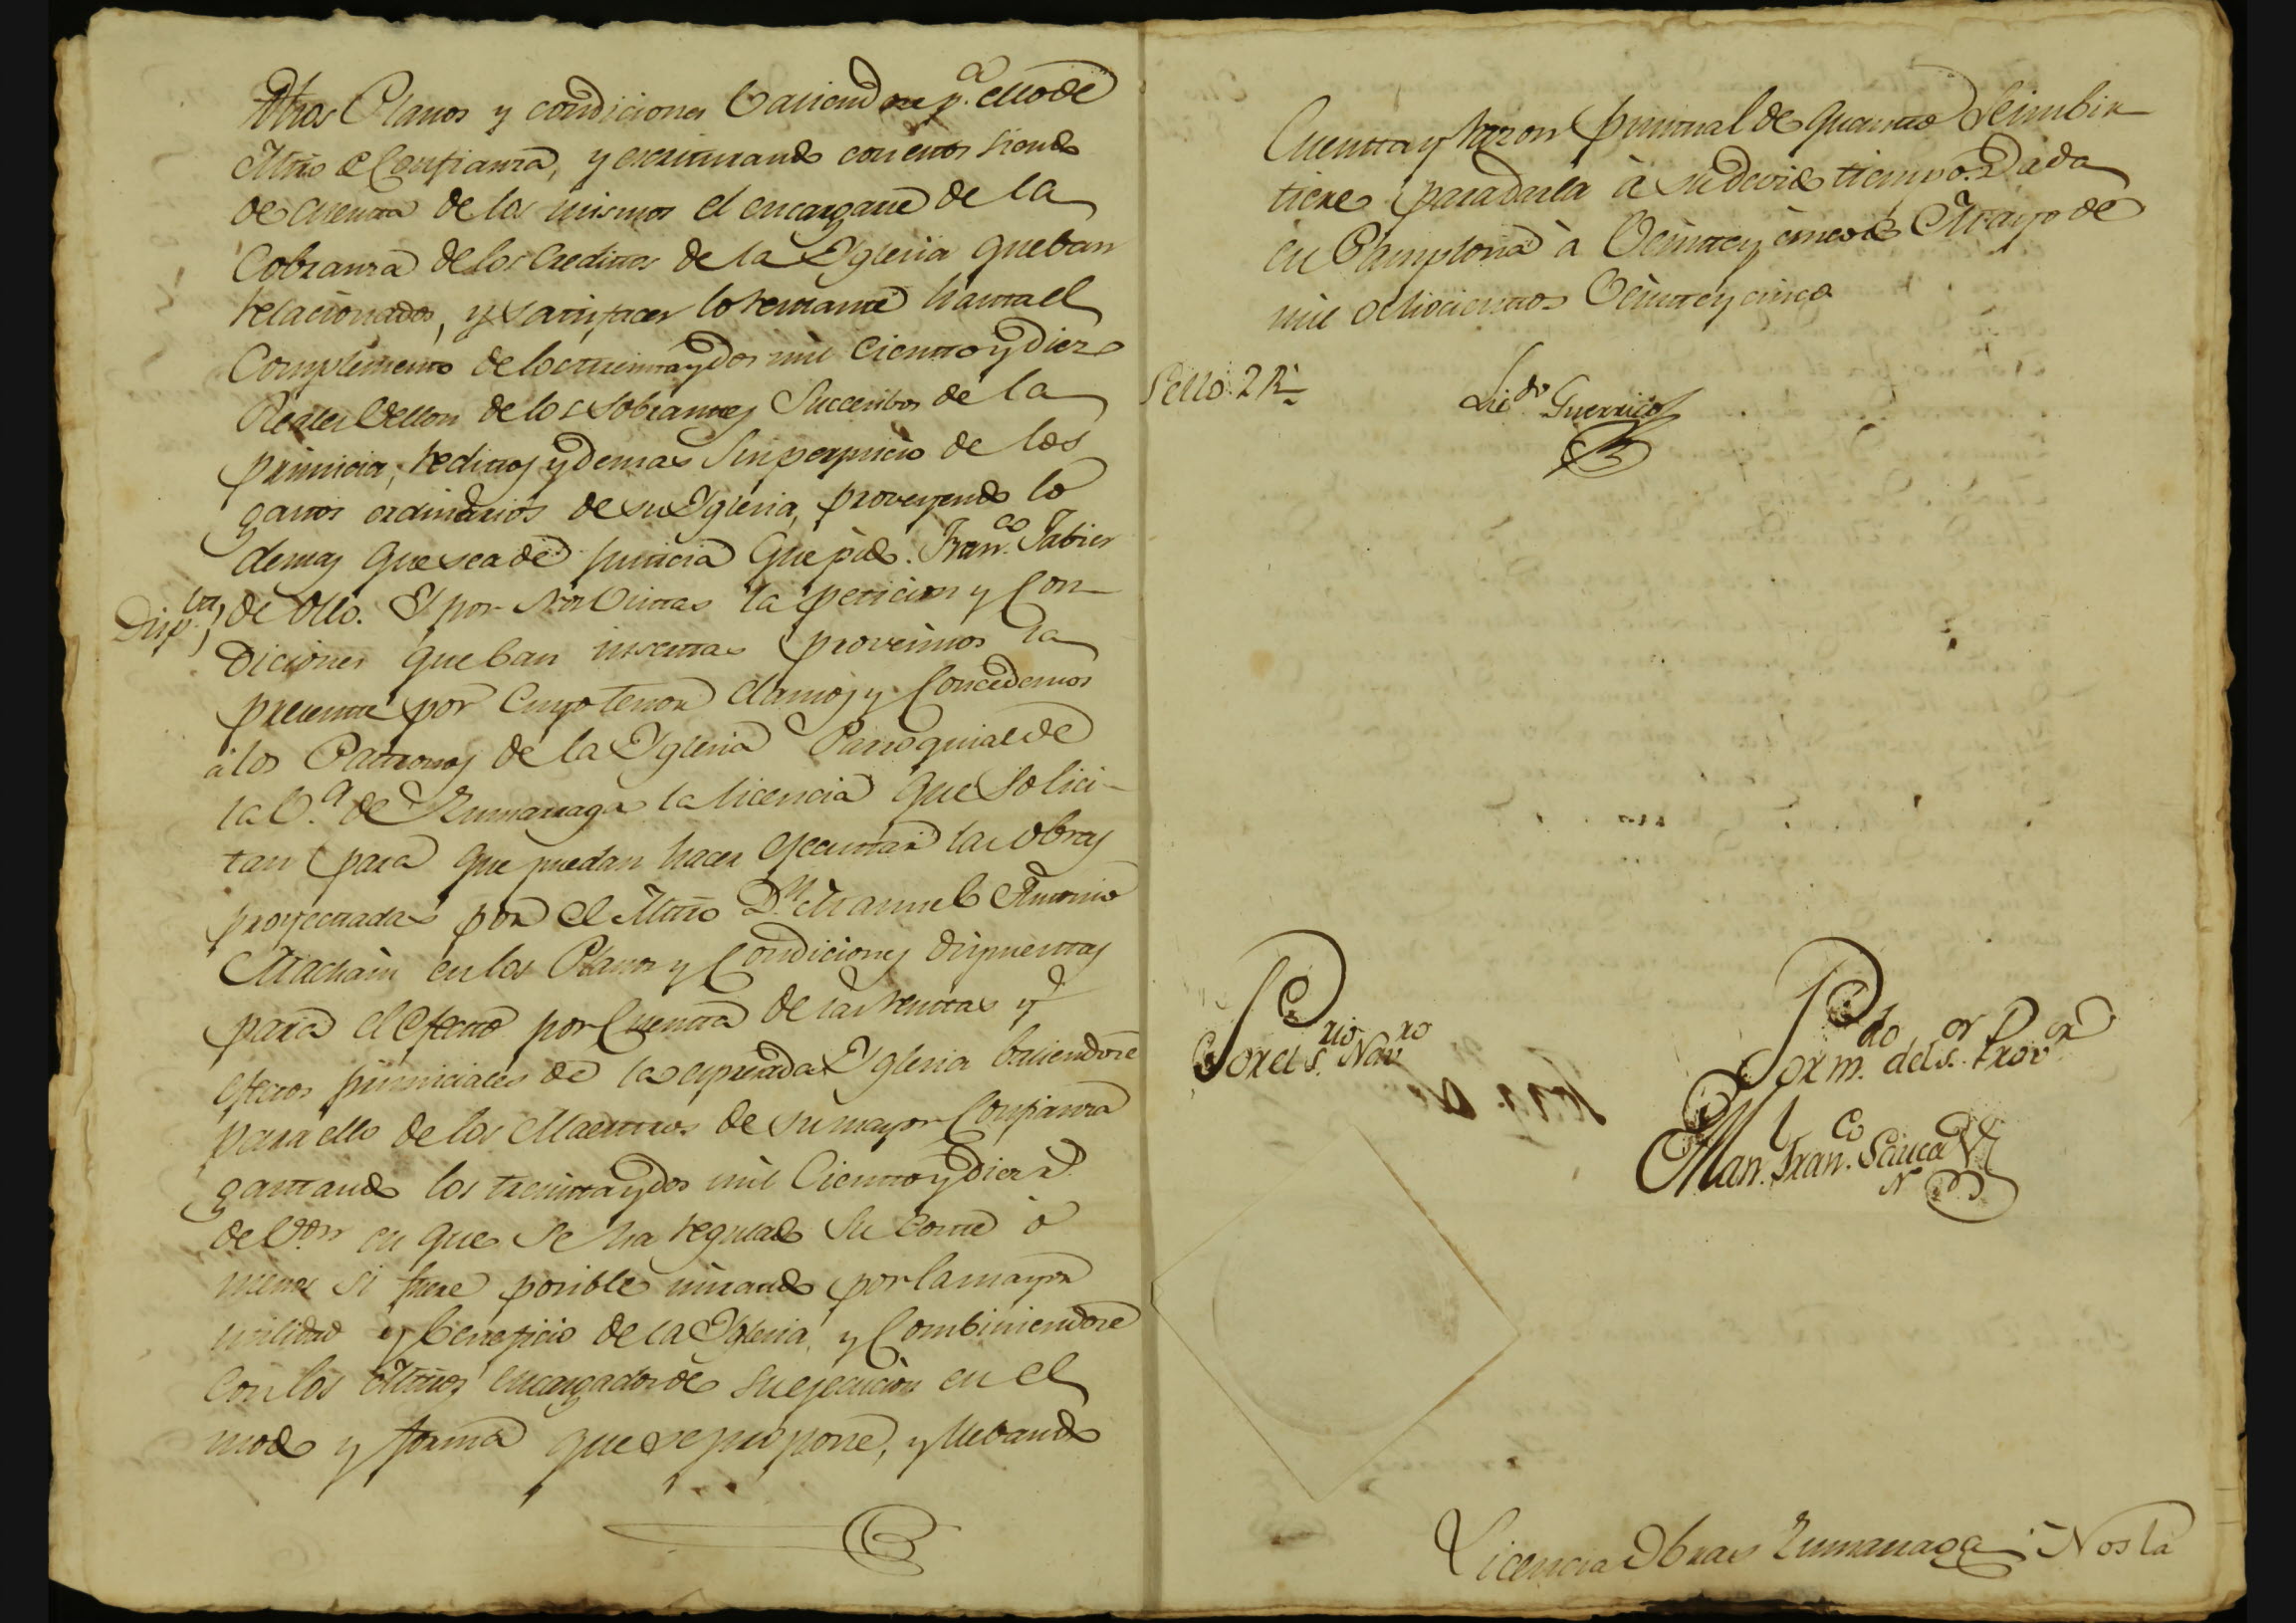 dhos Planos y condiciones baliendose p.ª ello de
Mtro de Confianza, y escriturando con estos siendo
de cuenta de los mismos el encargarse de la
Cobranza de los Creditos de la Yglesia que ban
relacionados, y satisfacer lo restante hasta el
Complemento de los treinta y dos mil Ciento y diez
Reales Vellon de los sobrantes Succesibos de la
primicia, reditos y demas Sin perjuicio de los
gastos ordinarios de su Yglesia, proveyendo lo
demas que sea de justicia que pido. Fran.co Jabier
de Ollo. E por Nos Vistas la peticion y Con-
diciones que ban insertas proveimos la
presente por cuyo tenor damos y Concedemos
a los Patronos de la Yglesia Parroquial de
la V.ª de Zumarraga la licencia que Solici-
tan para que puedan hacer egecutar las obras
proyectadas por el Mtro D.n Manuel Antonio
Machain en los Planos y Condiciones dispuestas
para el efecto por Cuenta de las rentas y
efectos primiciales de la expresada Yglesia baliendose
para ello de los Maestros de su mayor Confianza
gastando los treinta y dos mil Ciento y diez r.s
de V.on en que se ha regulado su coste ò
menos si fuere posible mirando por la mayor
utilidad y beneficio de la Yglesia, y Combiniendose
con los Mtros encargados de su ejecucion en el
modo y forma que se propone, y llebando
Cuenta y razon puntual de quanto Se imbir-
tiere para darla à su devido tiempo. Dada
en Pamplona à Veinte y cinco de Mayo de
mil ochocientos Veinte y cinco
Sello 2 R.s
Lic.do Guerrico
Por el S.rio Nav.ro
Por m.do del S.or Prov.or
Man.l Fran.co Seuca
N
Licencia Obras Zumarraga Nosla